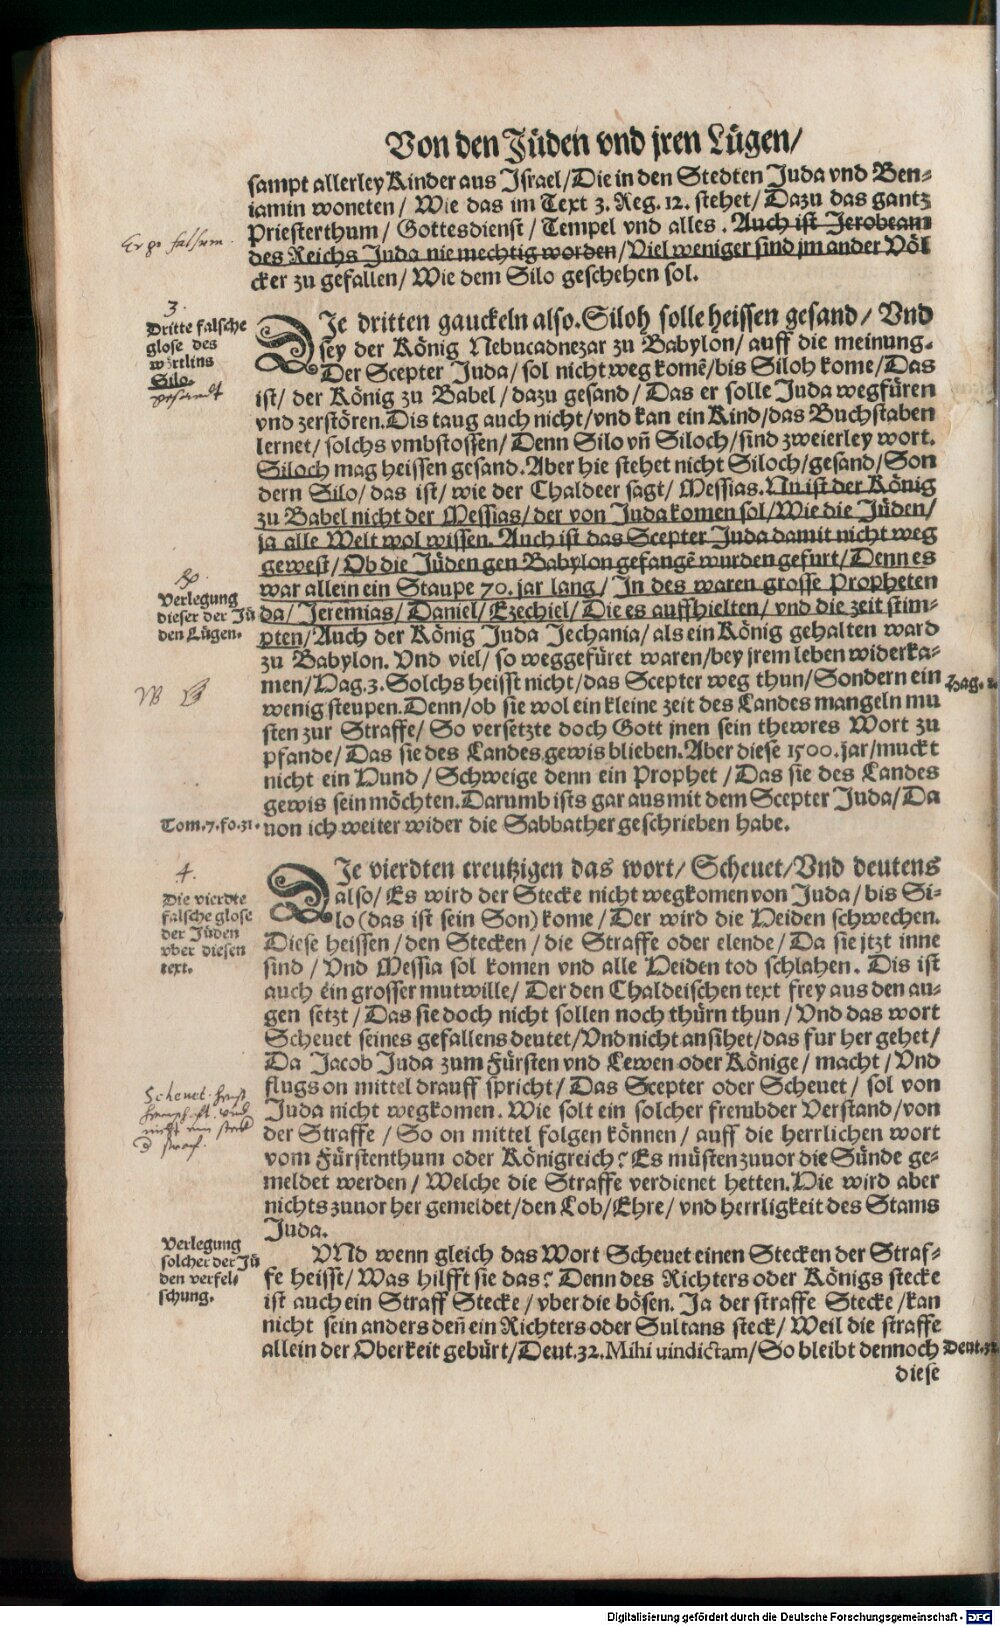 Von den Jüden vnd jren Lügen/
sampt allerley Kinder aus Israel/Die in den Stedten Juda vnd Ben-
iamin woneten/ Wie das im Text 3. Reg. 12. stehet/ Dazu das gantz
Priesterthum/ Gottesdienst/ Tempel vnd alles. Auch ist Jerobeam
Ergo falsum.
des Reichs Juda nie mechtig worden/Viel weniger sind jm ander Völ
cker zu gefallen/ Wie dem Silo geschehen sol.
3.
Dritte falsche
glose des
wörtlins
Silo.
gesandt
DJe dritten gauckeln also. Siloh solle heissen gesand/ Vnd
sey der König Nebucadnezar zu Babylon/ auff die meinung.
Der Scepter Juda/ sol nicht weg komē/bis Siloh kome/Das
ist/ der König zu Babel/ dazu gesand/ Das er solle Juda wegfüren
vnd zerstören. Dis taug auch nicht/vnd kan ein Kind/das Buchstaben
lernet/ solchs vmbstossen/ Denn Silo vn̄ Siloch/sind zweierley wort.
Siloch mag heissen gesand. Aber hie stehet nicht Siloch/gesand/Son
dern Silo/das ist/ wie der Chaldeer sagt/ Messias. Nu ist der König
zu Babel nicht der Messias/der von Juda komen sol/Wie die Jüden/
ja alle Welt wol wissen. Auch ist das Scepter Juda damit nicht weg
gewest/ Ob die Jüden gen Babylon gefangē wurden gefurt/ Denn es
war allein ein Staupe 70. jar lang/ In des waren grosse Propheten
Verlegung
dieser der Jü
den Lügen.
da/ Jeremias/ Daniel/ Ezechiel/ Die es auffhielten/ vnd die zeit stim-
pten/Auch der König Juda Jechania/ als ein König gehalten ward
zu Babylon. Vnd viel/ so weggefüret waren/bey jrem leben widerka-
men/Hag. 3. Solchs heisst nicht/das Scepter weg thun/Sondern ein
Hag. 2.
wenig steupen. Denn/ob sie wol ein kleine zeit des Landes mangeln mu
sten zur Straffe/ So versetzte doch Gott jnen sein thewres Wort zu
pfande/ Das sie des Landes gewis blieben. Aber diese 1500. jar/muckt
nicht ein Hund/ Schweige denn ein Prophet/ Das sie des Landes
gewis sein möchten. Darumb ists gar aus mit dem Scepter Juda/ Da
Tom. 7. fo. 31.
uon ich weiter wider die Sabbather geschrieben habe.
4.
Die vierdte
falsche glose
der Jüden
vber diesen
text.
DJe vierdten creutzigen das wort/ Scheuet/Vnd deutens
also/ Es wird der Stecke nicht wegkomen von Juda/ bis Si-
lo (das ist sein Son) kome/ Der wird die Heiden schwechen.
Diese heissen/den Stecken/ die Straffe oder elende/ Da sie jtzt inne
sind/ Vnd Messia sol komen vnd alle Heiden tod schlahen. Dis ist
auch ein grosser mutwille/ Der den Chaldeischen text frey aus den au-
gen setzt/ Das sie doch nicht sollen noch thürn thun/ Vnd das wort
Scheuet seines gefallens deutet/Vnd nicht ansihet/das fur her gehet/
Da Jacob Juda zum Fürsten vnd Lewen oder Könige/ macht/ Vnd
flugs on mittel drauff spricht/ Das Scepter oder Scheuet/ sol von
Juda nicht wegkomen. Wie solt ein solcher frembder Verstand/von
der Straffe/ So on mittel folgen können/ auff die herrlichen wort
vom Fürstenthum oder Königreich? Es müsten zuuor die Sünde ge-
meldet werden/ Welche die Straffe verdienet hetten. Hie wird aber
nichts zuuor her gemeldet/den Lob/Ehre/ vnd herrligkeit des Stams
Juda.
Scheuet
Verlegung
solcher der Jü
den verfel-
schung.
VNd wenn gleich das Wort Scheuet einen Stecken der Straf-
fe heisst/ Was hilfft sie das? Denn des Richters oder Königs stecke
ist auch ein Straff Stecke/ vber die bösen. Ja der straffe Stecke/kan
nicht sein anders den̄ ein Richters oder Sultans steck/ Weil die straffe
allein der Oberkeit gebürt/ Deut. 32. Mihi uindictam/So bleibt dennoch
Deut. 32.
diese
Digitalisierung gefördert durch die Deutsche Forschungsgemeinschaft - DFG